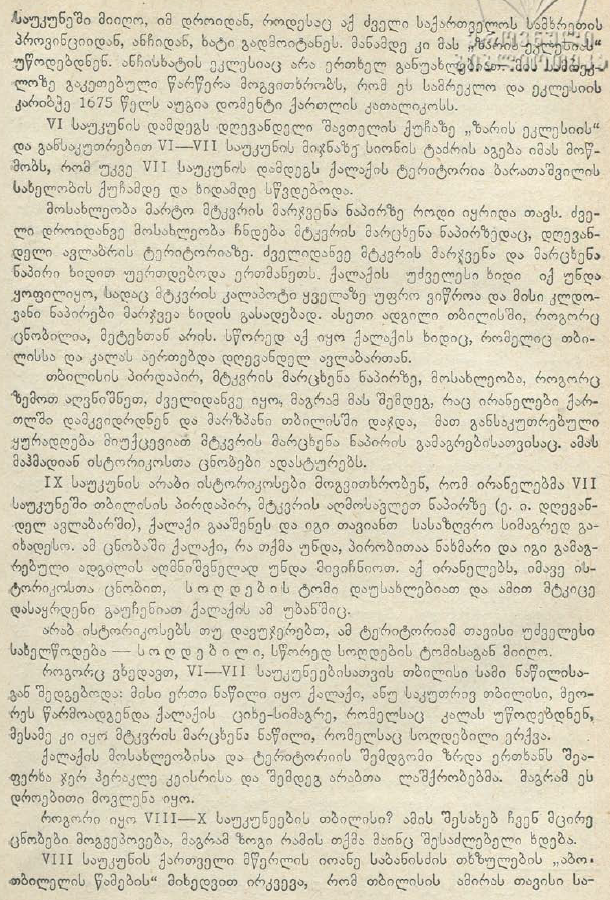 საუკუნეში მიიღო, იმ დროიდან, როდესაც აქ ძველი საქართველოს სამხრეთის
პროვინციიდან, ანჩიდან, ხატი გადმოიტანეს. მანამდე კი მას „ზარის ეკლესიას“
უწოდებდნენ. ანჩისხატის ეკლესიაც არა ერთხელ განუახლებიათ. მის სამრეკ-
ლოზე გაკეთებული წარწერა მოგვითხრობს, რომ ეს სამრეკლო და ეკლესიის
კარიბჭე 1675 წელს აუგია დომენტი ქართლის კათალიკოსს.
VI საუკუნის დამდეგს დღევანდელი შავთელის ქუჩაზე „ზარის ეკლესიის“
და განსაკუთრებით VI—VII საუკუნის მიჯნაზე სიონის ტაძრის აგება იმას მოწ-
მობს, რომ უკვე VII საუკუნის დამდეგს ქალაქის ტერიტორია ბარათაშვილის
სახელობის ქუჩამდე და ხიდამდე სწვდებოდა.
მოსახლეობა მარტო მტკვრის მარჯვენა ნაპირზე როდი იყრიდა თავს. ძვე-
ლი დროიდანვე მოსახლეობა ჩნდება მტკვრის მარცხენა ნაპირზედაც, დღევან-
დელი ავლაბრის ტერიტორიაზე. ძველიდანვე მტკვრის მარჯვენა და მარცხენა
ნაპირი ხიდით უერთდებოდა ერთმანეთს. ქალაქის უძველესი ხიდი იქ უნდა
ყოფილიყო, სადაც მტკვრის კალაპოტი ყველაზე უფრო ვიწროა და მისი კლდო-
ვანი ნაპირები მარჯვეა ხიდის გასადებად. ასეთი ადგილი თბილისში, როგორც
ცნობილია, მეტეხთან არის. სწორედ აქ იყო ქალაქის ხიდიც, რომელიც თბი-
ლისსა და კალას აერთებდა დღევანდელ ავლაბართან.
თბილისის პირდაპირ, მტკვრის მარცხენა ნაპირზე, მოსახლეობა, როგორც
ზემოთ აღვნიშნეთ, ძველიდანვე იყო, მაგრამ მას შემდეგ, რაც ირანელები ქარ-
თლში დამკვიდრდნენ და მარზპანი თბილისში დაჯდა, მათ განსაკუთრებული
ყურადღება მიუქცევიათ მტკვრის მარცხენა ნაპირის გამაგრებისათვისაც. ამას
მაჰმადიან ისტორიკოსთა ცნობები ადასტურებს.
IX საუკუნის არაბი ისტორიკოსები მოგვითხრობენ, რომ ირანელებმა VII
საუკუნეში თბილისის პირდაპირ, მტკვრის აღმოსავლეთ ნაპირზე (ე. ი. დღევან-
დელ ავლაბარში), ქალაქი გააშენეს და იგი თავიანთ სასაზღვრო სიმაგრედ გა-
იხადესო. ამ ცნობაში ქალაქი, რა თქმა უნდა, პირობითაა ნახმარი და იგი გამაგ-
რებული ადგილის აღმნიშვნელად უნდა მივიჩნიოთ. აქ ირანელებს, იმავე ის-
ტორიკოსთა ცნობით, სოღდების ტომი დაუსახლებიათ და ამით მტკიცე
დასაყრდენი გაუჩენიათ ქალაქის ამ უბანშიც.
არაბ ისტორიკოსებს თუ დავუჯერებთ, ამ ტერიტორიამ თავისი უძველესი
სახელწოდება — სოღდებილი, სწორედ სოღდების ტომისაგან მიიღო.
როგორც ვხედავთ, VI—VII საუკუნეებისათვის თბილისი სამი ნაწილისა-
გან შედგებოდა: მისი ერთი ნაწილი იყო ქალაქი, ანუ საკუთრივ თბილისი, მეო-
რეს წარმოადგენდა ქალაქის ციხე-სიმაგრე, რომელსაც კალას უწოდებდნენ,
მესამე კი იყო მტკვრის მარცხენა ნაწილი, რომელსაც სოღდებილი ერქვა.
ქალაქის მოსახლეობისა და ტერიტორიის შემდგომი ზრდა ერთხანს შეა-
ფერხა ჯერ ჰერაკლე კეისრისა და შემდეგ არაბთა ლაშქრობებმა. მაგრამ ეს
დროებითი მოვლენა იყო.
როგორი იყო VIII—X საუკუნეების თბილისი? ამის შესახებ ჩვენ მცირე
ცნობები მოგვეპოვება, მაგრამ ზოგი რამის თქმა მაინც შესაძლებელი ხდება.
VIII საუკუნის ქართველი მწერლის იოანე საბანისძის თხზულების „აბო-
თბილელის წამების“ მიხედვით ირკვევა, რომ თბილისის ამირას თავისი სა-